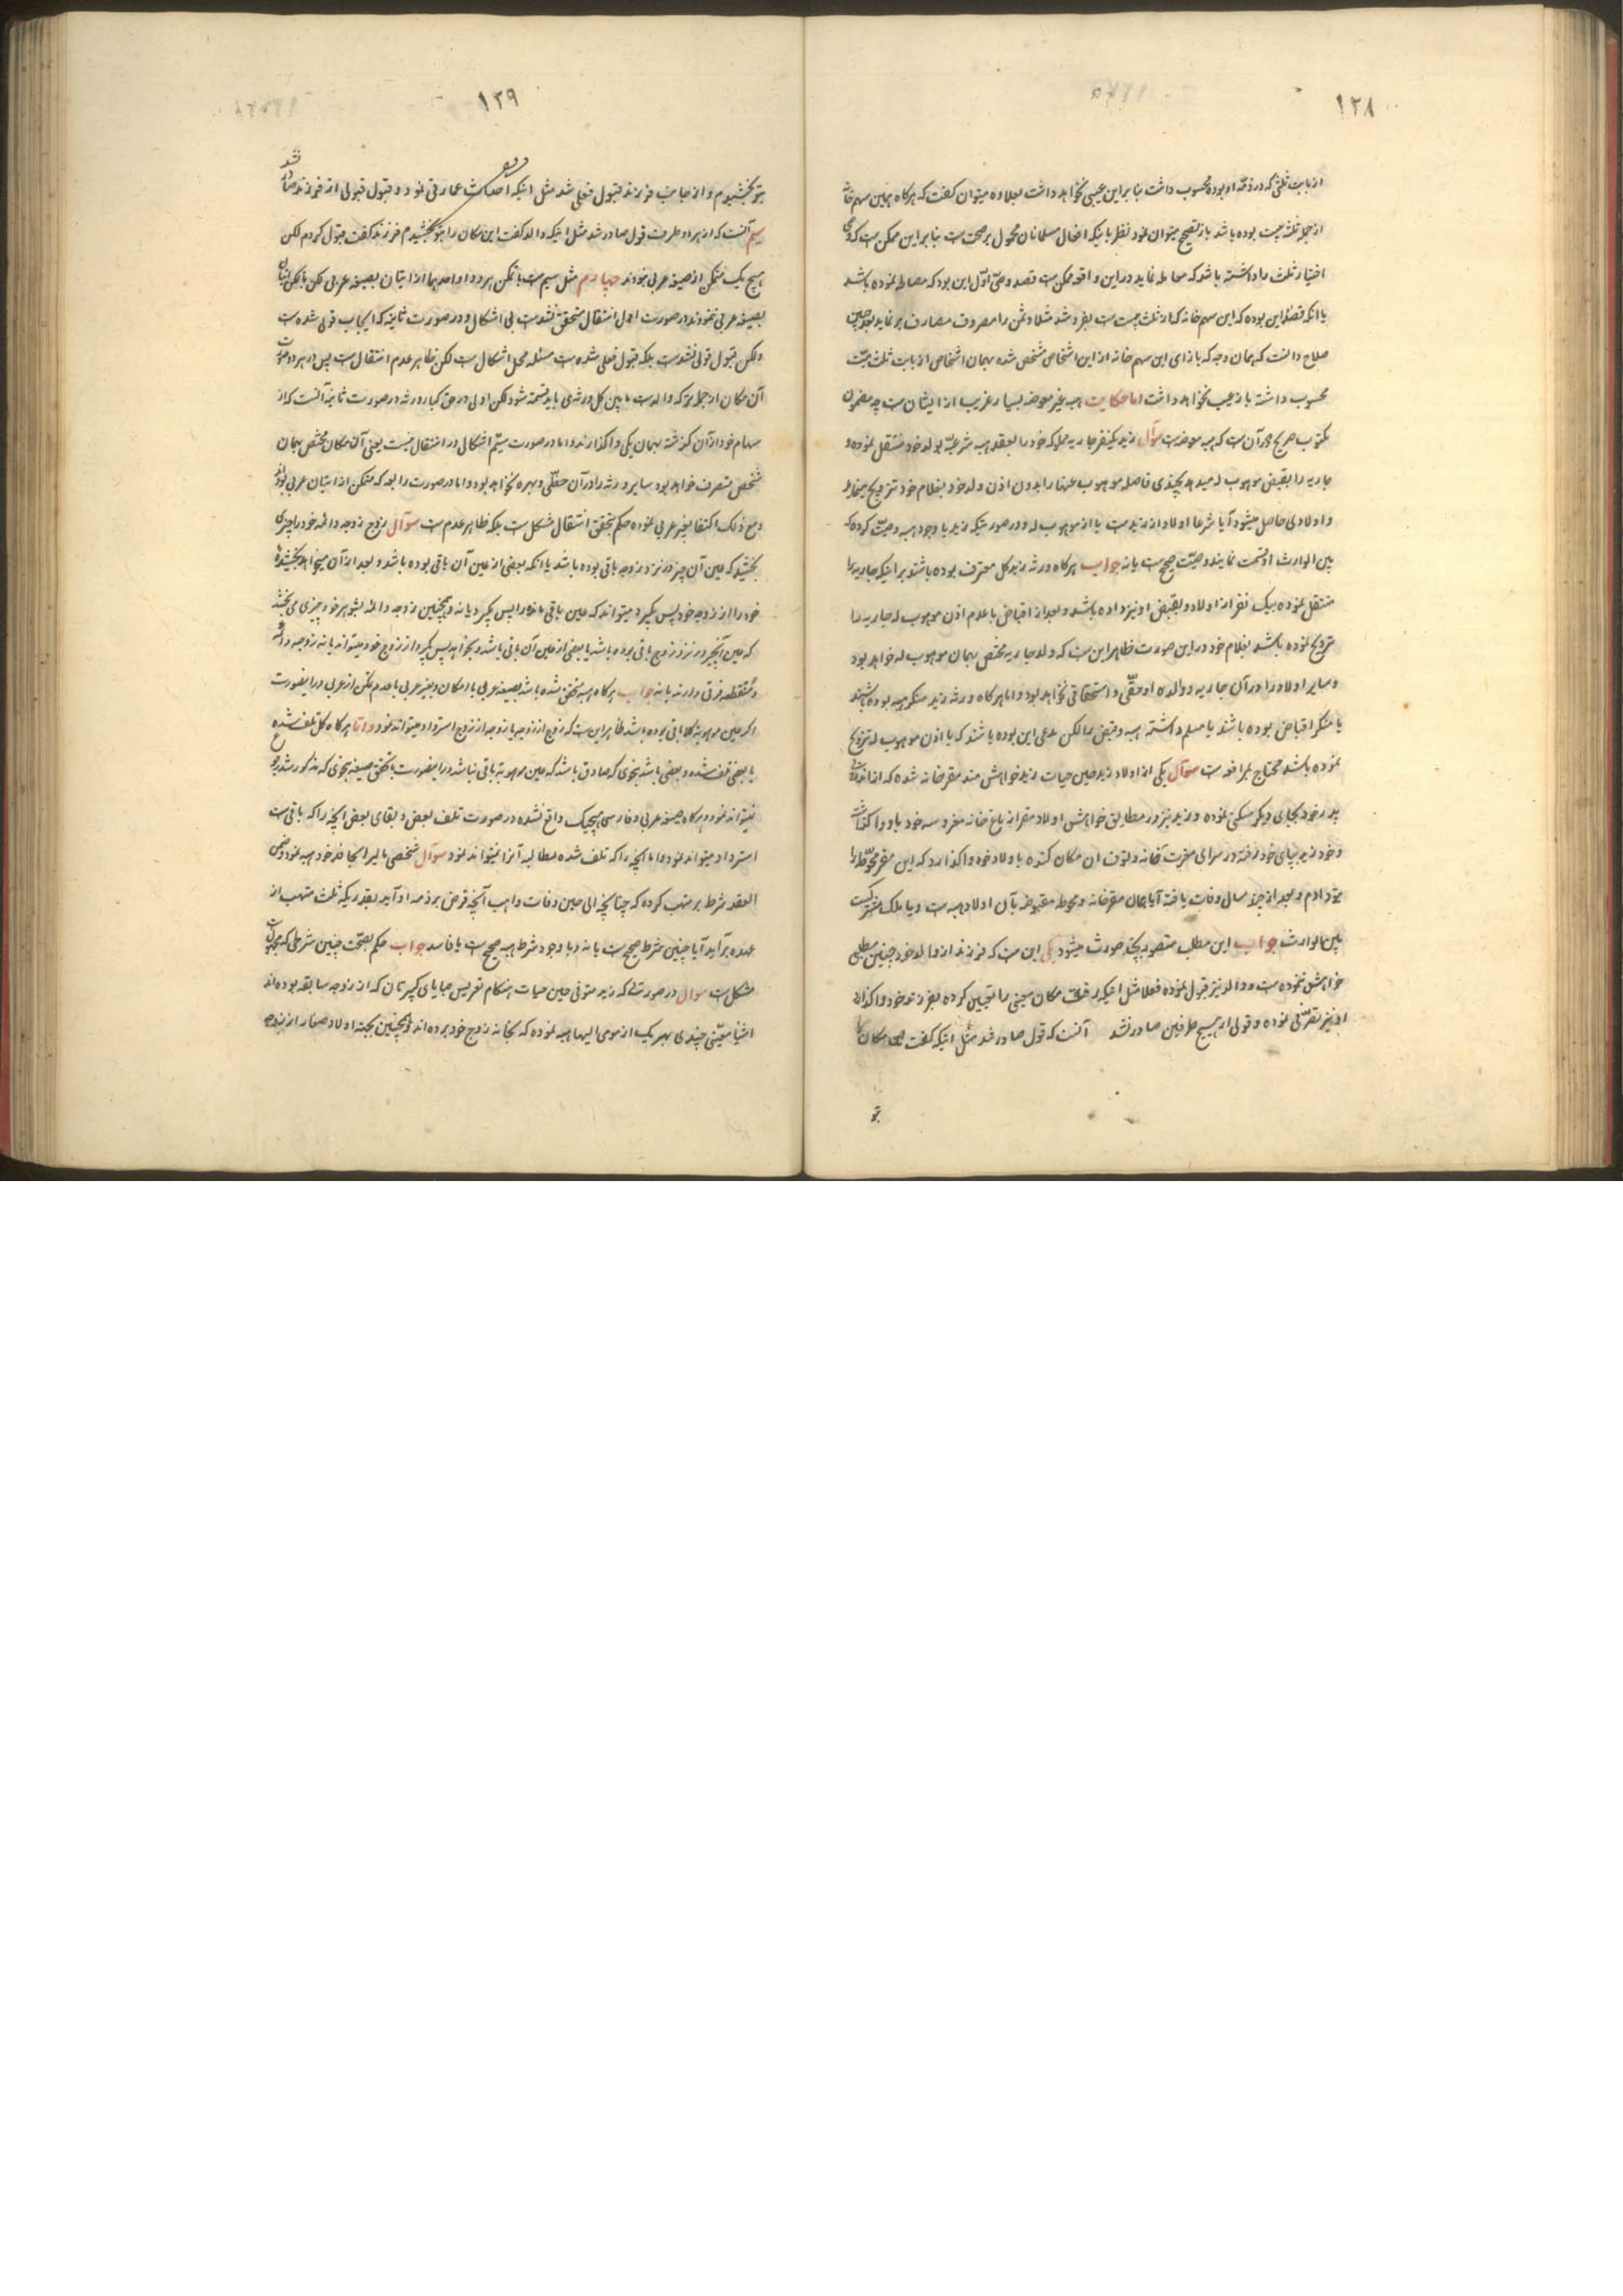 ۱۲۸
از بابت ثلثی که در ذمّه او بوده محسوب داشت بنابراین عیبی نخواهد داشت بعلاوه میتوان گفت که هرگاه همین سهم خانه
از جمله ثلث میت بوده باشد باز تصحیح میتوان نمود نظر باینکه افعال مسلمانان محمول بر صحت است بنابراین ممکن است که
اختیار ثلث را داشته باشد که معامله نماید در این واقعه ممکن است قصد وصی اول این بوده که مصالحه نموده باشد
یا انکه قصد این بوده که این سهم خانه که از ثلث میت است بفروشد مثلا و ثمن را مصروف مصارف بر نماید بعد چنین
صلاح دانست که همان وجه که بازای این سهم خانه از این اشخاص مشخص شده بهمان اشخاص از بابت ثلث میّت
محسوب داشته باز عیب نخواهد داشت اما حکایت هبه غیر معوضه بسیار غریب از ایشان است چه مضمون
مکتوب صریح در آن است که هبه معوضه است سؤال زید یکنفر جاریه مملوکه خود را بعقد هبه شرعیّه بولد خود منتقل نموده و
جاریه را بقبض موهوب له میدهد بچندی فاصله موهوب عنها را بدون اذن ولد خود بغلام خود تزویج مینماید
و اولادی حاصل میشود آیا شرعا اولاد از زید است یا از موهوب له و در صورتیکه زید با وجود هبه وصیّت کرده که
بین الوارث او قسمت نمایند وصیّت صحیح است یا نه جواب هرگاه ورثه زید کل معترف بوده باشند بر اینکه جاریه را
منتقل نموده بیک نفر از اولاد و بقبض او نیز داده باشد و بعد از اقباض با عدم اذن موهوب له جاریه را
تزویج نموده باشد بغلام خود در این صورت ظاهر این است که ولد جاریه مختص بهمان موهوب له خواهد بود
و سایر اولاد را در آن جاریه و والده او حقّی و استحقاقی نخواهد بود و اما هرگاه ورثه زید منکر هبه بوده باشند
یا منکر اقباض بوده باشند یا مسلم داشته هبه و قبض را لکن مدعی این بوده باشند که با اذن موهوب له تزویج
نموده باشد محتاج بمرافعه است سؤال یکی از اولاد زید حین حیات زید خواهش مند مقرخانه شده که از
پدر خود بجای دیگر مسکنی نموده و زید نیز در مطابق خواهش اولاد مقر از باغ خانه مفروسه خود باو واگذاشت
و خود زید بپای خود رفته در سرای آنخانه وتوقف ان مکان کنده باولاد خود واگذارد که این مقر محوّطه را
بتو دادم و بعد از چند سال وفات یافته آیا بهمان مقرخانه و محوطه مقبوضه بآن اولاد هبه است و یا ملک مشترکیست
بین الوارث جواب این مطلب متصور بچند صورت میشود یکی این است که فرزند از والد خود چنین مطلبی
خواهش نموده است و والد نیز قبول نموده فعلا مثل اینکه رفت مکان معینی را تعیین کرده بفرزند خود واگذار
او نیز تصرّفی نموده و قولی از هیچ طرفین صادر نشد آنست که قول صادر شد مثل اینکه گفت این مکان را
بتو
۱۲۹
بتو بخشیدم و از جانب فرزند قبول فعلی شد مثل اینکه احداث عمارتی نمود و قبول قولی از فرزند صادر نشد
سیم آنست که از هر دو طرف قول صادر شد مثل اینکه والد گفت این مکان را بتو بخشیدم فرزند گفت قبول کردم لکن
هیچ یک متمکن از صیغه عربی نبودند چهارم مثل سیم است با تمکن هر دو او احدهما از اتیان بصیغه عربی لکن
بصیغه عربی ننمودند در صورت اول انتقال متحقق نشده است بی اشکال و در صورت ثانیه که ایجاب قولی شده است
ولکن قبول قولی نشده است بلکه قبول فعلی شده است مسئله محل اشکال است لکن ظاهر عدم انتقال است پس در هر دو صورت
آن مکان از جمله ترکه والد است مابین کل ورثه می باید قسمة شود لکن اولی در حق کبار ورثه در صورت ثانیه آنست که از
سهام خود از آن گذشته بهمان یکی واگذارند و اما در صورت سیّم اشکالی در انتقال نیست یعنی آن مکان مختص بهمان
شخص متصرف خواهد بود سایر ورثه را در آن حظّی و بهره نخواهد بود و اما در صورت رابعه که متمکن از اتیان عربی بوده
و مع ذلک اکتفا بغیر عربی نموده حکم بتحقق انتقال مشکل است بلکه ظاهر عدم است سؤال زوج زوجه دائمه خود را چیزی
بخشید که عین آن چیز در نزد زوجه باقی بوده باشد یا انکه بعضی از عین آن باقی بوده باشد و بعد از آن میخواهد بخشیده
خود را از زوجه خود پس بگیرد میتواند که عین باقی مانده را پس بگیرد یا نه و همچنین زوجه دائمه بشوهر خود چیزی می بخشد
که عین آنچیز در نزد زوج باقی بوده باشد یا بعضی از عین آن باقی باشد و بخواهد پس بگیرد از زوج خود میتواند یا نه زوجه دائمه
و منقطعه فرقی دارند یا نه جواب هرگاه هبه متحقق شده باشد بصیغه عربی با امکان و بغیر عربی با عدم تمکن از عربی در اینصورت
اگر عین موهوبه کلا باقی بوده باشد ظاهر این است که زوج از زوجه یا زوجه از زوج استرداد میتواند نمود و اما هرگاه کل تلف شده
یا بعضی تلف شده و بعضی باشد بنحوی که صادق باشد که عین موهوبه باقی نباشد در اینصورت با تحقق صیغه بنحوی که مذکور شد رجوع
نمیتواند نمود و هرگاه صیغه عربی و فارسی هیچیک واقع نشده در صورت تلف بعض و بقای بعض آنچه را که باقی است
استرداد میتواند نمود و اما آنچه را که تلف شده مطالبه آنرا نمیتواند نمود سؤال شخصی مالیرا بجا خذ خود هبه نمود و ضمن
العقد شرط بر متهب کرده که چنانچه الی حین وفات واهب آنچه قرض بر ذمه او آید بقدریکه ثلث متهب از
عهده برآید آیا چنین شرط صحیح است یا نه و با وجود شرط هبه صحیح است یا فاسد جواب حکم بصحّت چنین شرطی که مجهول است
مشکل است سؤال در صورتی که زید متوفی حین حیات هنگام تعریس صبایای کبیرتان که از زوجه سابقه بوده اند
اشیا معیّنی چندی بهر یک از مومی الیها هبه نموده که بخانه زوج خود برده اند و همچنین بجهة اولاد صغار از زوجه